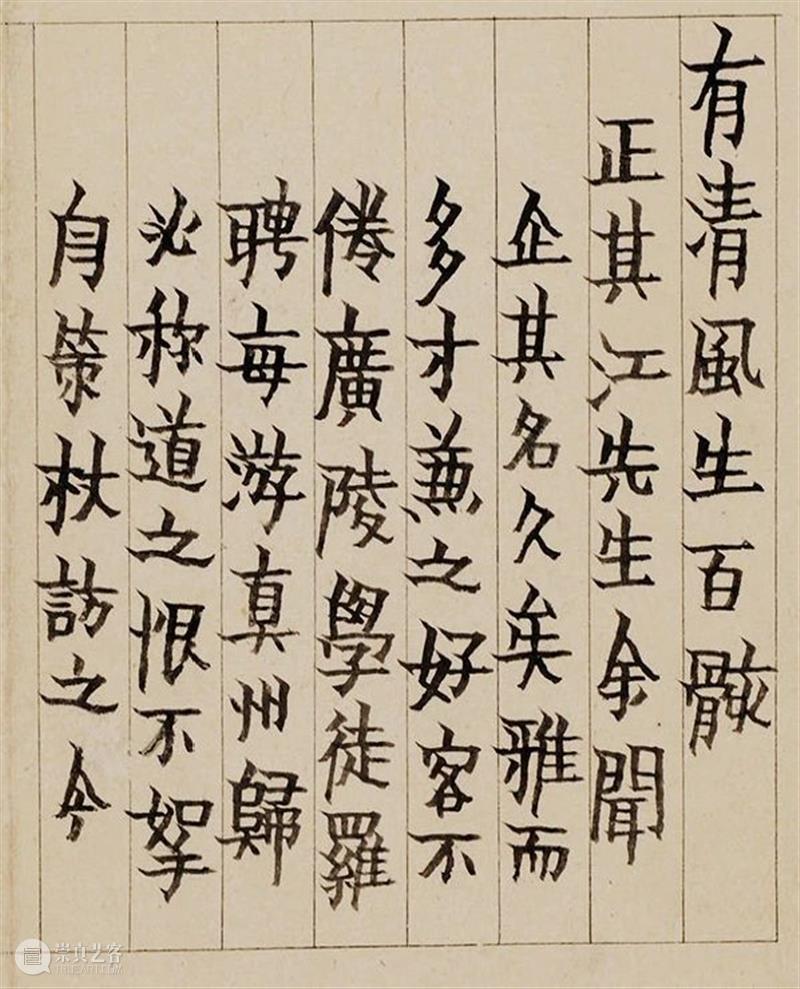 有清風生百骸
正其江先生余聞
企其名久矣雅而
多才兼之好客不
倦廣陵學徒羅
聘每游真州歸
必称道之恨不挐
舟策杖訪之今
崇真艺客
TRUEART.COM